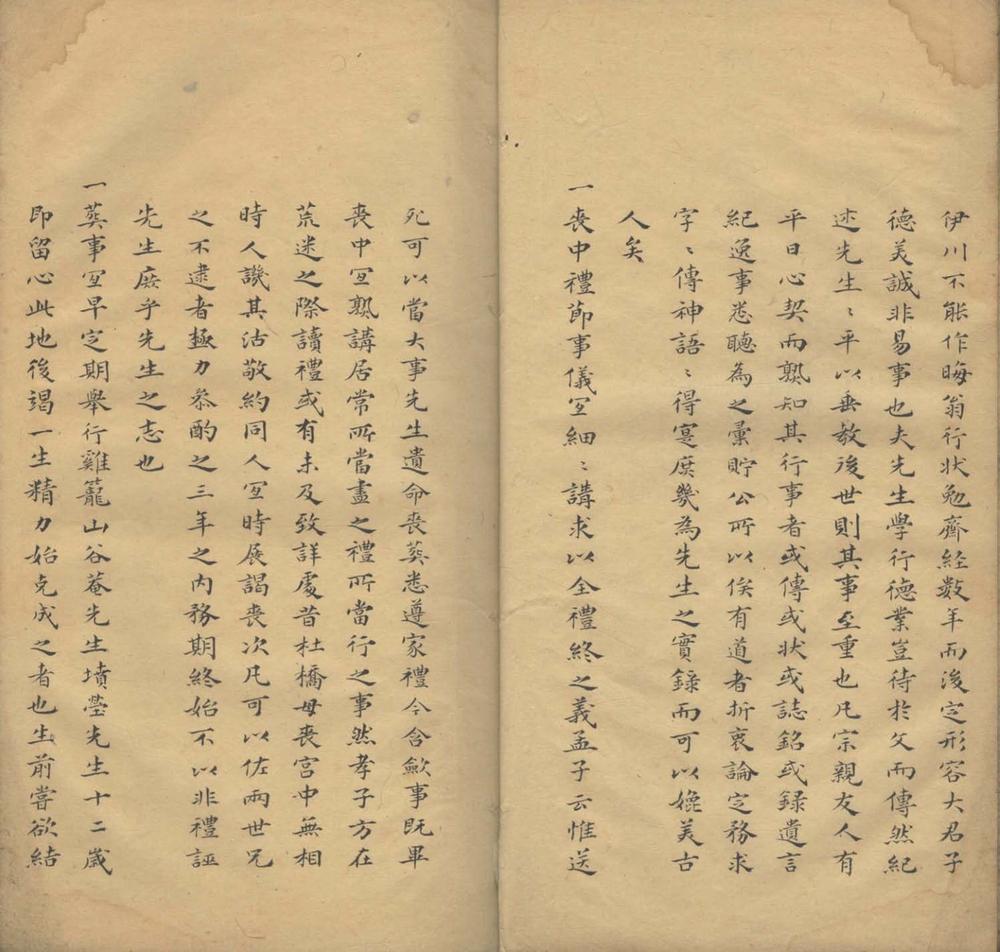 伊川不能作晦翁行状勉齋经数年而後定形容大君子
德美誠非易事也夫先生學行德業豈待於文而傳然紀
述先生〻平以垂教後世則其事至重也凡宗親友人有
平日心契而熟知其行事者或傳或状或誌銘或録遺言
紀逸事悉聽為之彙貯公所以俟有道者折衷論定務求
字〻傳神語〻得寔庶幾為先生之實録而可以媲美古
人矣
一喪中禮節事儀宜細〻講求以全禮終之義孟子云惟送
死可以當大事先生遺命喪葬悉遵家禮今含歛事既畢
喪中宜熟講居常所當盡之禮所當行之事然孝子方在
荒迷之際讀禮或有未及致詳處昔杜橋母喪宮中無相
時人譏其沽敬約同人宜時展謁喪次凡可以佐兩世兄
之不逮者極力叅酌之三年之内務期終始不以非禮誣
先生庶乎先生之志也
一葬事宜早定期舉行雞籠山谷菴先生墳塋先生十二歲
即留心此地後竭一生精力始克成之者也生前嘗欲結